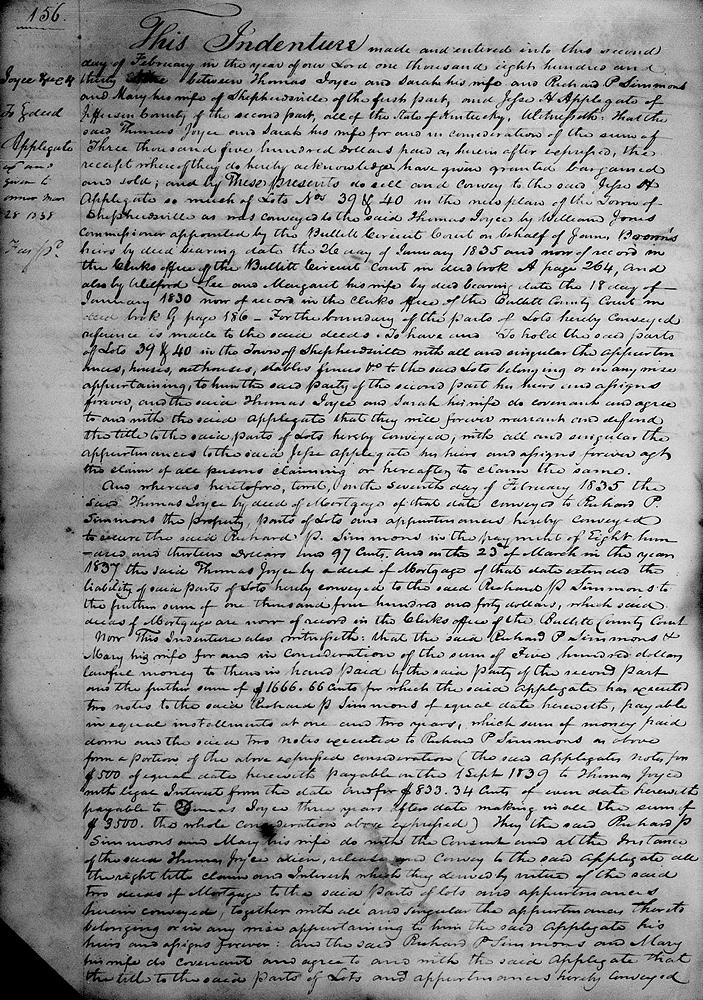 156.
This Indenture made and entered into this second
day of February in the year of our Lord one thousand eight hundred and
thirty between Thomas Joyce and Sarah his wife and Richard P Simmons
and Mary his wife of Shepherdsville of the first part, and Jesse H Applegate of
Jefferson County of the second part, all of the State of Kentucky, Witnesseth: That the
said Thomas Joyce and Sarah his wife for and in consideration of the sum of
Three thousand five hundred Dollars paid as herein after expressed, the
receipt whereof they do hereby acknowledge have given granted bargained
and sold; and by These presents do sell and convey to the said Jesse H
Applegate so much of Lots Nos 39 & 40 in the new plan of the Town of
Shepherdsville as was conveyed to the said Thomas Joyce by William Jones
Commissioner appointed by the Bullitt Circuit Court on behalf of James
heirs by deed bearing date the 26 day of January 1835 and now of record in
the Clerks office of the Bullitt Circuit Court in deed book A page 264, and
also by Wilford Lee and Margaret his wife by deed bearing date the 18 day of
January 1830 now of record in the Clerks office of the Bullitt County Court in
deed book G page 186 - For the boundary of the parts of Lots hereby conveyed
reference is made to the said deeds: To have and To hold the said parts
of Lots 39 & 40 in the Town of Shepherdsville with all and singular the appurten
ances, houses, outhouses, stables fences &c to the said Lots belonging or in any wise
appurtaining, to him the said party of the second part his heirs and assigns
forever, and the said Thomas Joyce and Sarah his wife do covenant and agree
to and with the said Applegate that they will forever warrant and defend
the title to the said parts of Lots hereby conveyed, with all and singular the
appurtinances to the said Jesse Applegate his heirs and assigns forever agt
the claim of all persons claiming or hereafter to claim the same.
And whereas heretofore, towit, on the seventh day of February 1835 the
said Thomas Joyce by deed of Mortgage of that date conveyed to Richard P.
Simmons the property, parts of Lots and appurtinances hereby conveyed
to secure the said Richard P. Simmons in the payment of Eight hun
-dred and thirteen Dollars and 97 Cents. And on the 23d of March in the year
1837 the said Thomas Joyce by a deed of Mortgage of that date extended the
liability of said parts of Lots hereby conveyed to the said Richard P Simmons to
the further sum of one thousand four hundred and forty dollars, which said
deeds of Mortgage are now of record in the Clerks office of the Bullitt County Court
Now This Indenture also witnesseth: that the said Richard P Simmons &
Mary his wife for and in Consideration of the sum of Five hundred dollars
lawful money to them in hand paid by the said party of the second part
and the further sum of $1666.66 Cents for which the said Applegate has executed
two notes to the said Richard P Simmons of equal date herewith, payable
in equal installments at one and two years, which sum of money paid
down and the said two notes executed to Richard P Simmons as above
form a portion of the above expressed consideration (the said Applegates note, for
$500 of equal date herewith payable on the 1 Sept 1839 to Thomas Joyce
with legal Interest from the date and for $833.34 Cents of even date herewith
payable to Thomas Joyce three years after date making in all the sum of
$3500. the whole consideration above expressed) They the said Richard P
Simmons and Mary his wife do with the Consent and at the Instance
of the said Thomas Joyce alien, release and Convey to the said Applegate all
the right title claim and Interest which they derived by virtue of the said
two deeds of Mortgage to the said parts of lots and appurtinances
herein conveyed, together with all and singular the appurtinances thereto
belonging or in any wise appurtaining to him the said Applegate his
heirs and assigns forever: And the said Richard P Simmons and Mary
his wife do covenant and agree to and with the said Applegate that
the title to the said parts of Lots and appurtinances hereby conveyed
Joyce &c
To deed
Applegate
given to
owner Mar